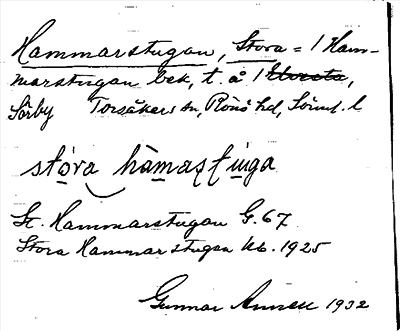 Hammarstugan, Stora = 1 Ham-
marstugan bek, t. å 1
Sörby Torsåkers sn, Rönö hd, Sörml. l
stora hamastuga
St. Hammarstugan G. 67
Stora Hammarstugan kb. 1925
Gunnar 1932